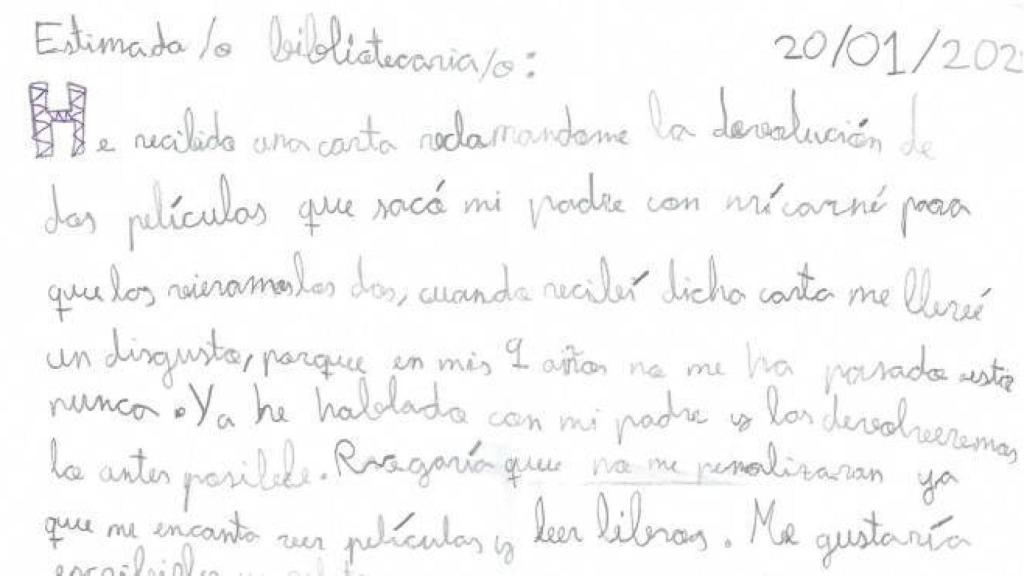 Estimada/o bibliotecaria/o: 20/01/202
He recibido una carta reclamandome la devolución de
dos películas que sacó mi padre con mi carné para
que las vieramos los dos, cuando recibí dicha carta me llevé
un disgusto, porque en mis 9 años no me ha pasado esto
nunca. Ya he hablado con mi padre y las devolveremos
lo antes posible. Rogaría que no me penalizaran ya
que me encanta ver películas y leer libros. Me gustaría